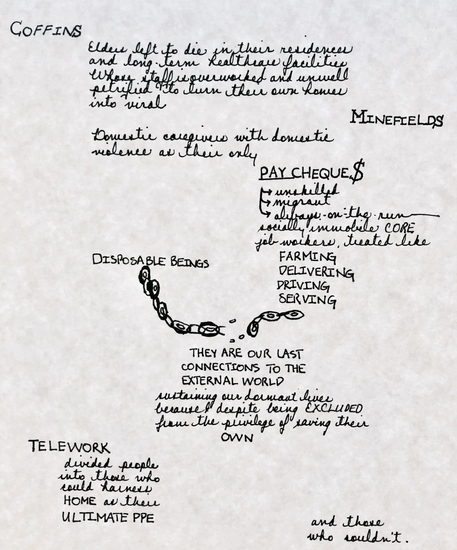 COFFINS
Elders left to die in their residences
and long-term healthcare facilities
Whose staff is overworked and unwell
petrified to turn their own homes
into viral
MINEFIELDS
Domestic caregivers with domestic
violence as their only
PAY CHEQUE$
unskilled
migrant
always-on-the-run
socially immobile CORE
job workers, treated like
FARMING
DELIVERING
DRIVING
SERVING
DISPOSABLE BEINGS
THEY ARE OUR LAST
CONNECTIONS TO THE
EXTERNAL WORLD
sustaining our dormant lives
because/despite being EXCLUDED
from the privilege of saving their
OWN
TELEWORK
divided people
into those who
could harness
HOME as their
ULTIMATE PPE
and those
who couldn't.